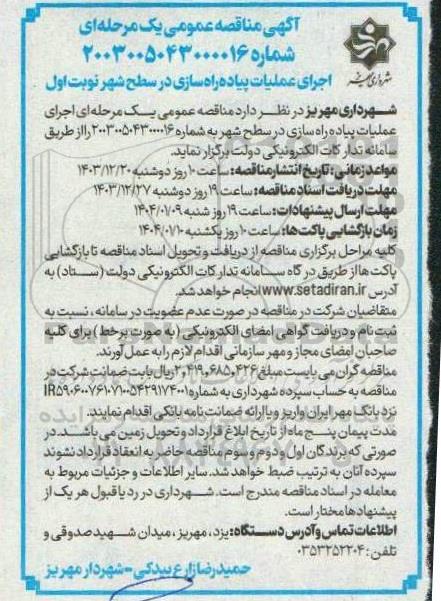 آگهی مناقصه عمومی یک مرحله‌ای
شماره ۲۰۰۳۰۰۵۰۴۳۰۰۰۰۱۶
اجرای عملیات پیاده راه سازی در سطح شهر نوبت اول
شهرداری مهریز
شهرداری مهریز در نظر دارد مناقصه عمومی یک مرحله‌ای اجرای
عملیات پیاده راه سازی در سطح شهر به شماره ۲۰۰۳۰۰۵۰۴۳۰۰۰۰۱۶ را از طریق
سامانه تدارکات الکترونیکی دولت برگزار نماید.
مواعد زمانی: تاریخ انتشار مناقصه: ساعت ۱۰ روز دوشنبه ۱۴۰۳/۱۲/۲۰
مهلت دریافت اسناد مناقصه: ساعت ۱۹ روز دوشنبه ۱۴۰۳/۱۲/۲۷
مهلت ارسال پیشنهادات: ساعت ۱۹ روز شنبه ۱۴۰۴/۰۱/۰۹
زمان بازگشایی پاکت‌ها: ساعت ۱۰ روز یکشنبه ۱۴۰۴/۰۱/۱۰
کلیه مراحل برگزاری مناقصه از دریافت و تحویل اسناد مناقصه تا بازگشایی
پاکت‌ها از طریق درگاه سامانه تدارکات الکترونیکی دولت (ستاد) به
آدرس www.setadiran.ir انجام خواهد شد.
متقاضیان شرکت در مناقصه در صورت عدم عضویت در سامانه، نسبت به
ثبت نام و دریافت گواهی امضای الکترونیکی (به صورت برخط) برای کلیه
صاحبان امضای مجاز و مهر سازمانی اقدام لازم را به عمل آورند.
مناقصه گران می بایست مبلغ ۲,۴۱۹,۰۶۸۵,۰۴۲۶ ریال بابت ضمانت شرکت در
مناقصه به حساب سپرده شهرداری به شماره IR۵۹۰۶۰۰۷۶۱۰۷۱۰۰۵۴۲۹۱۷۴۰۰۱
نزد بانک مهر ایران واریز و یا ارائه ضمانت نامه بانکی اقدام نمایند.
مدت پیمان پنج ماه از تاریخ ابلاغ قرارداد و تحویل زمین می باشد. در
صورتی که برندگان اول و دوم و سوم مناقصه حاضر به انعقاد قرارداد نشوند
سپرده آنان به ترتیب ضبط خواهد شد. سایر اطلاعات و جزئیات مربوط به
معامله در اسناد مناقصه مندرج است. شهرداری در رد یا قبول هر یک از
پیشنهادها مختار است.
اطلاعات تماس و آدرس دستگاه: یزد، مهریز، میدان شهید صدوقی و
تلفن: ۰۳۵۳۲۵۲۲۰۴
حمیدرضا زارع بیدکی - شهردار مهریز